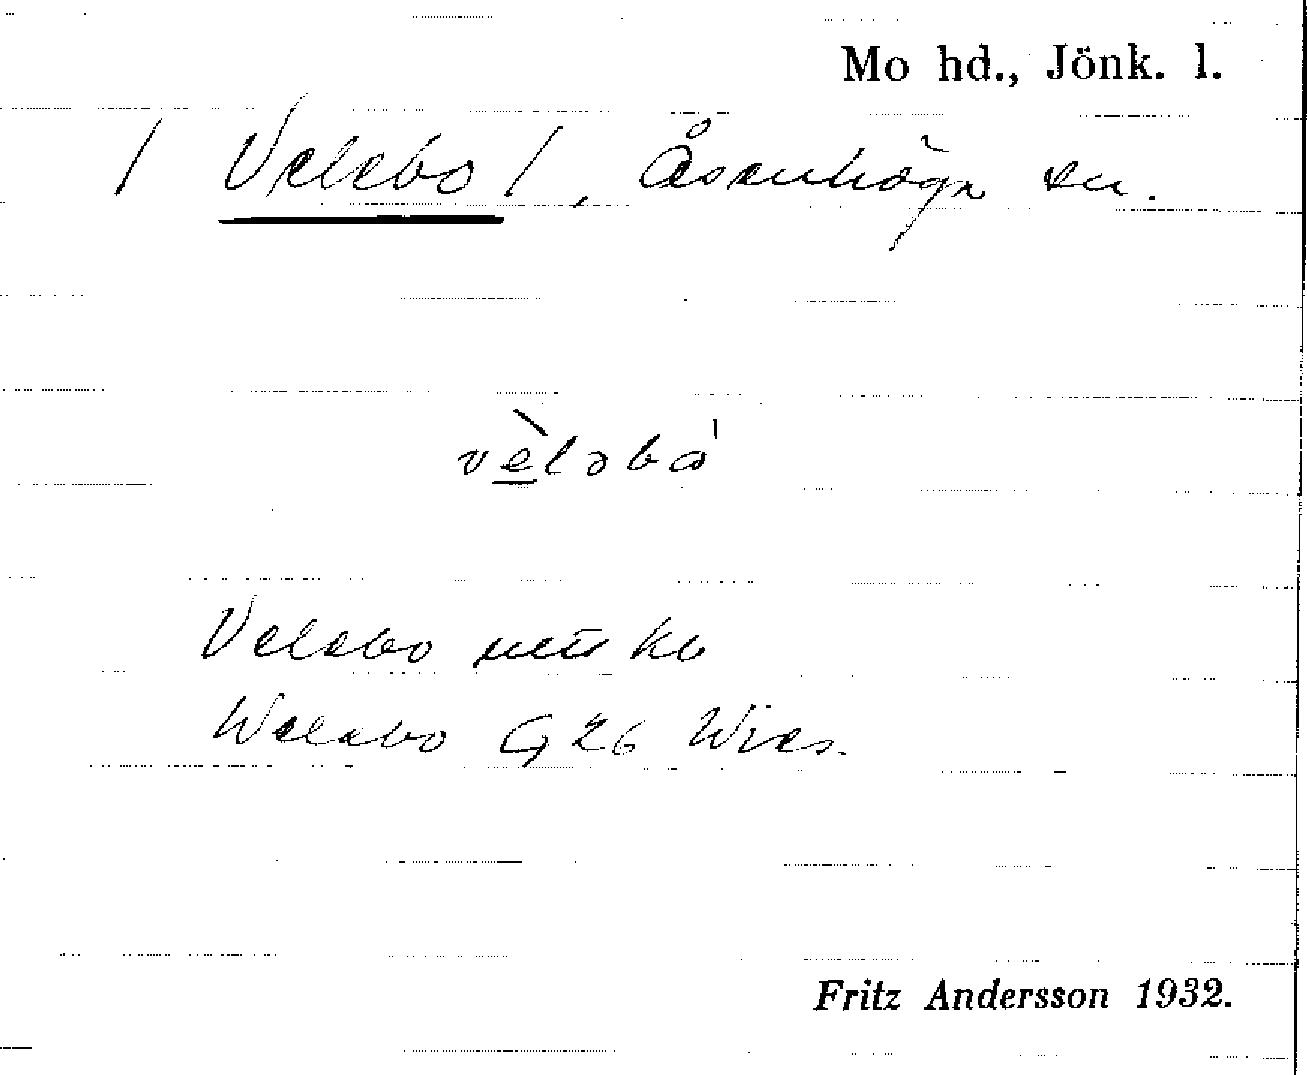 Mo hd., Jönk. l.
/ Velebo /, Åsenhöga sn.
vèləbo
Velebo
Welebo G 26 Wies.
Fritz Andersson 1932.